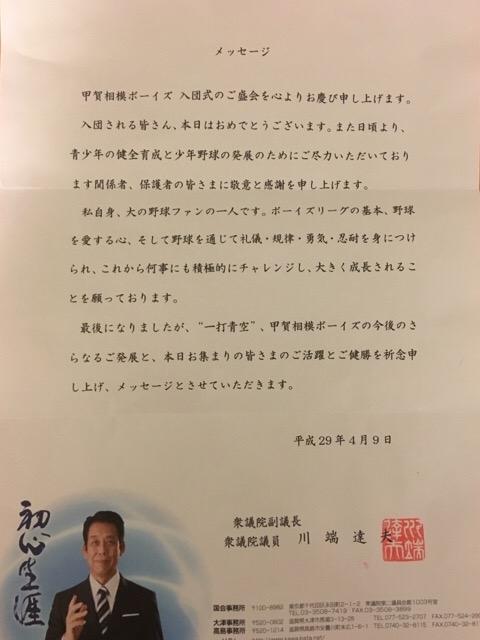 メッセージ
甲賀相模ボーイズ 入団式のご盛会を心よりお慶び申し上げます。
入団される皆さん、本日はおめでとうございます。また日頃より、
青少年の健全育成と少年野球の発展のためにご尽力いただいており
ます関係者、保護者の皆さまに敬意と感謝を申し上げます。
私自身、大の野球ファンの一人です。ボーイズリーグの基本、野球
を愛する心、そして野球を通じて礼儀・規律・勇気・忍耐を身につけ
られ、これから何事にも積極的にチャレンジし、大きく成長されるこ
とを願っております。
最後になりましたが、“一打青空”、甲賀相模ボーイズの今後のさ
らなるご発展と、本日お集まりの皆さまのご活躍とご健勝を祈念申
し上げ、メッセージとさせていただきます。
平成29年4月9日
衆議院副議長
衆議院議員 川端達夫
初心生涯
国会事務所 〒100-8982 東京都千代田区永田町2-1-2 衆議院第二議員会館1003号室
TEL.03-3508-7419 FAX.03-3508-3899
大津事務所 〒520-0802 滋賀県大津市馬場3-13-28 TEL.077-523-2707 FAX.077-524-
高島事務所 〒520-1214 滋賀県高島市安曇川町末広1-6-1 TEL.0740-32-8115 FAX.0740-32-8116